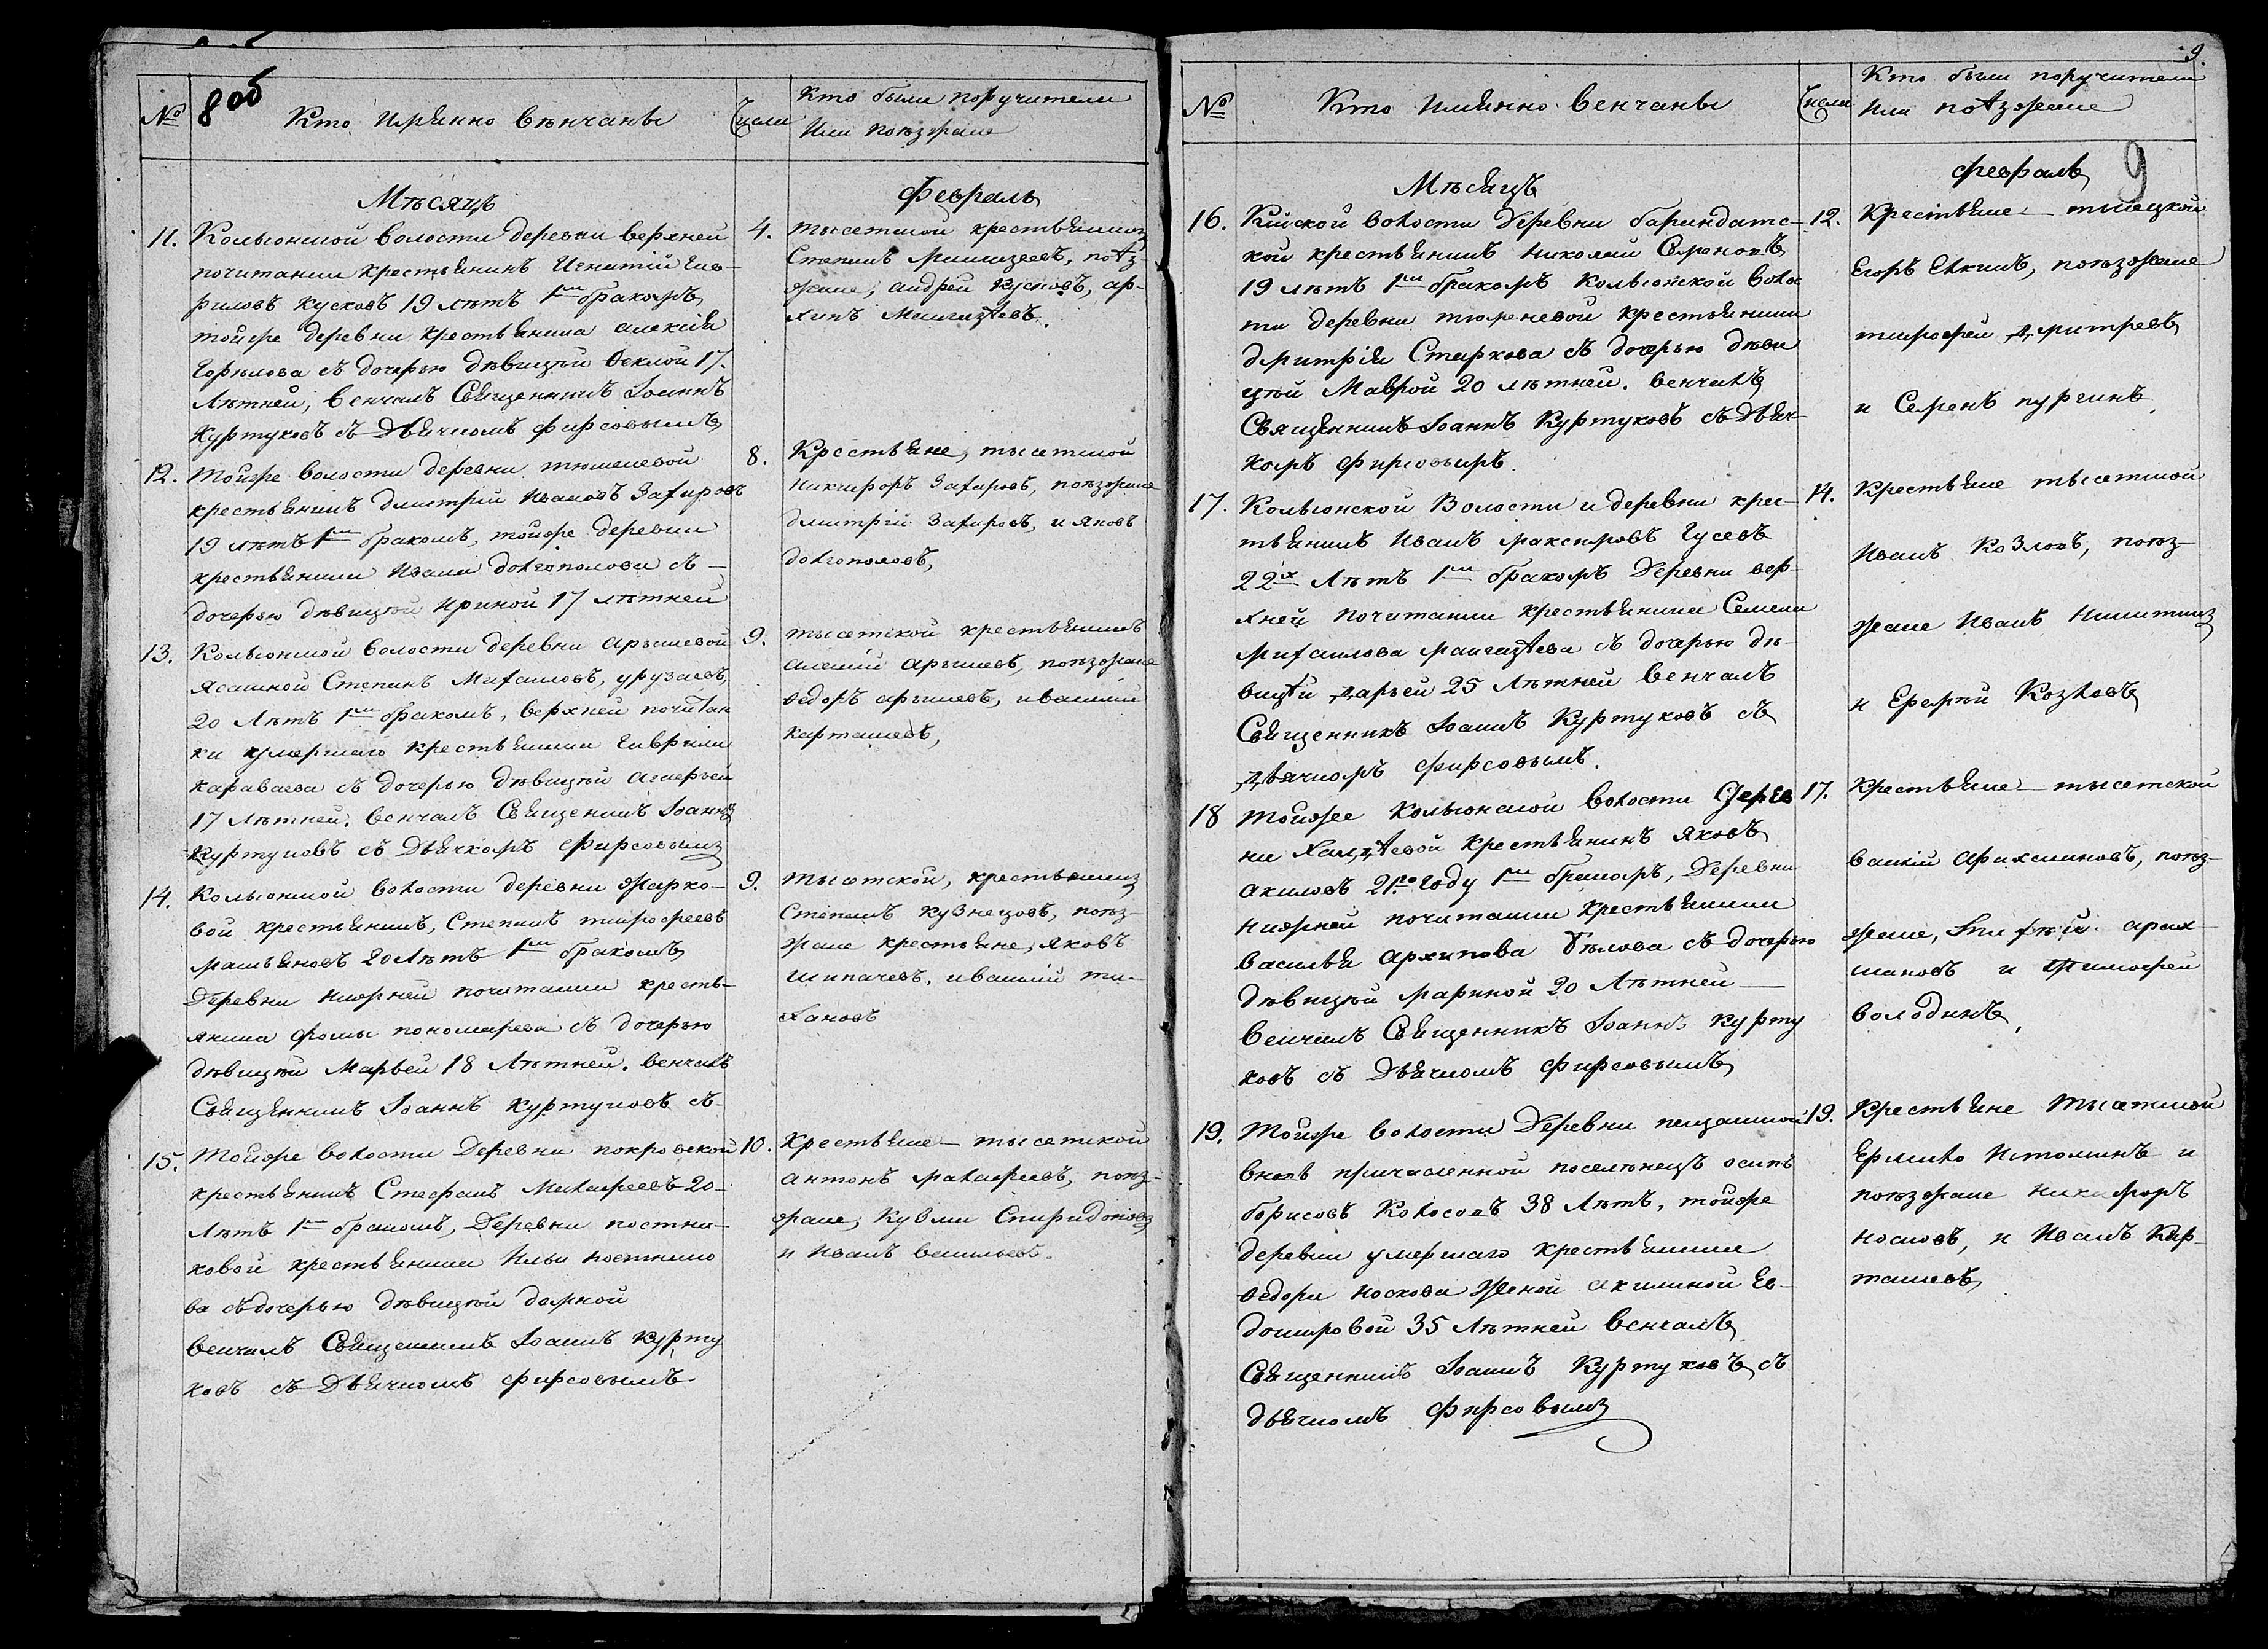 8 об
№ Кто имянно вѣнчаны Числа Кто были поручители
или поѣзжане
Мѣсяцъ Февраль
11. Колыонской волости деревни верхней
почитанки крестьянинъ Игнатій Гав-
риловъ Кусковъ 19 лѣтъ 1мъ бракомъ,
тойже деревни крестьянина алексѣя
Горѣлова съ дочерью дѣвицѣй Ѳеклой 17.
Лѣтней, венчалъ Священникъ Іоаннъ
Куртуковъ съ Дьячкомъ Фирсовымъ
4. тысетской крестьянинъ
Степанъ Мангазеевъ, поѣз-
жане, андрей Кусковъ, ар-
хипъ Мангазѣевъ.
12. Тойже волости деревни тюменевой
крестьянинъ дмитрій Ивановъ Захаровъ
19 лѣтъ 1мъ бракомъ, тойже деревни
крестьянина Ивана долгополова съ
дочерью дѣвицѣй Ириной 17 лѣтней
8. Крестьяне, тысетской
Никифоръ Захаровъ, поѣзжане
дмитрій Захаровъ, и яковъ
долгополовъ,
13. Колыонской волости деревни арышевой
Ясашной Степанъ Михаиловъ, урузаевъ,
20 Лѣтъ 1мъ бракомъ, верхней почитан
ки умершаго крестьянина Гаврилы
караваева съ дочерью дѣвицѣй агаѳьей
17 лѣтней. венчалъ Священникъ Іоаннъ
Куртуковъ съ Дьячкомъ Фирсовымъ
9. тысетской крестьянинъ
алексій арышевъ, поѣзжане
Ѳедоръ арышевъ, и василій
карташевъ,
14. Колыонской волости деревни Жарко-
вой крестьянинъ, Степанъ тимофеевъ
20 Лѣтъ 1мъ бракомъ,
Деревни нижней почитанки кресть-
янина Фомы пономарева съ дочерью
дѣвицѣй Марьей 18 Лѣтней. венчалъ
Священникъ Іоаннъ Куртуковъ съ
9. тысетской, крестьянинъ
Степанъ кузнецовъ, поѣз-
жане крестьяне, яковъ
Шипачевъ, и василій ти-
хановъ
15. Тойже волости Деревни покровской
крестьянинъ Стефанъ Макарѳеевъ 20
Лѣтъ 1мъ бракомъ, Деревни постни-
ковой крестьянина Ильи постнико
ва съ дочерью дѣвицѣй домной
венчалъ Священникъ Іоаннъ Курту
ковъ съ Дьячкомъ Фирсовымъ
10. Крестьяне тысетской
антонъ поѣз-
жане, Кузма Спиридоновъ
и Иванъ васильевъ.
9.
№ Кто имянно венчаны Числа Кто были поручители
или поѣзжане
9
Мѣсяцъ февраль
16. Кійской волости деревни бариндатс-
кой крестьянинъ николай Семеновъ
19 лѣтъ 1мъ бракомъ Колыонской волос
ти деревни тюменевой крестьянина
дмитрія Старкова съ дочерью дѣви
цѣй Маврой 20 лѣтней. венчалъ
Священникъ Іоаннъ Куртуковъ съ Дьяч-
комъ Фирсовымъ.
12. Крестьяне тысецкой
Егоръ Елкинъ, поѣзжане
тимофей дмитревъ
и Семенъ пургинъ
17. Колыонской Волости и деревни крес-
тьянинъ Иванъ максимовъ Гусевъ
22хъ Лѣтъ 1мъ бракомъ Деревни вер-
хней почитанки крестьянина Семена
Михаилова мангазѣева съ дочерью дѣ-
вицѣй дарьей 25 Лѣтней венчалъ
Священникъ Іоаннъ Куртуковъ съ
дьячкомъ Фирсовымъ.
14. Крестьяне тысетской
Иванъ Козловъ, поѣз-
жане Иванъ Никитинъ
и Еремѣй Козловъ
18 Тойже Колыонской волости Дерев
ни Халдѣевой крестьянинъ яковъ
акиловъ 21го году 1мъ бракомъ, Деревни
нижней почитанки крестьянина
василья архипова бѣлова съ дочерью
дѣвицѣй мариной 20 Лѣтней
венчалъ Священникъ Іоаннъ Курту
ковъ съ Дьячкомъ Фирсовымъ
17. Крестьяне тысетской
василій поѣз-
жане, арах
мановъ и тимофей
володинъ,
19. Тойже волости Деревни
вновь причисленной поселѣнецъ осипъ
борисовъ Колосовъ 38 Лѣтъ, тойже
деревни умершаго крестьянина
Ѳедора носкова Женой акилиной Ев-
докимовой 35 Лѣтней венчалъ
Священникъ Іоаннъ Куртуковъ съ
дьячкомъ Фирсовымъ
19. Крестьяне тысетской
Ермило Истоминъ и
поѣзжане никифоръ
носковъ, и Иванъ Кар-
ташевъ